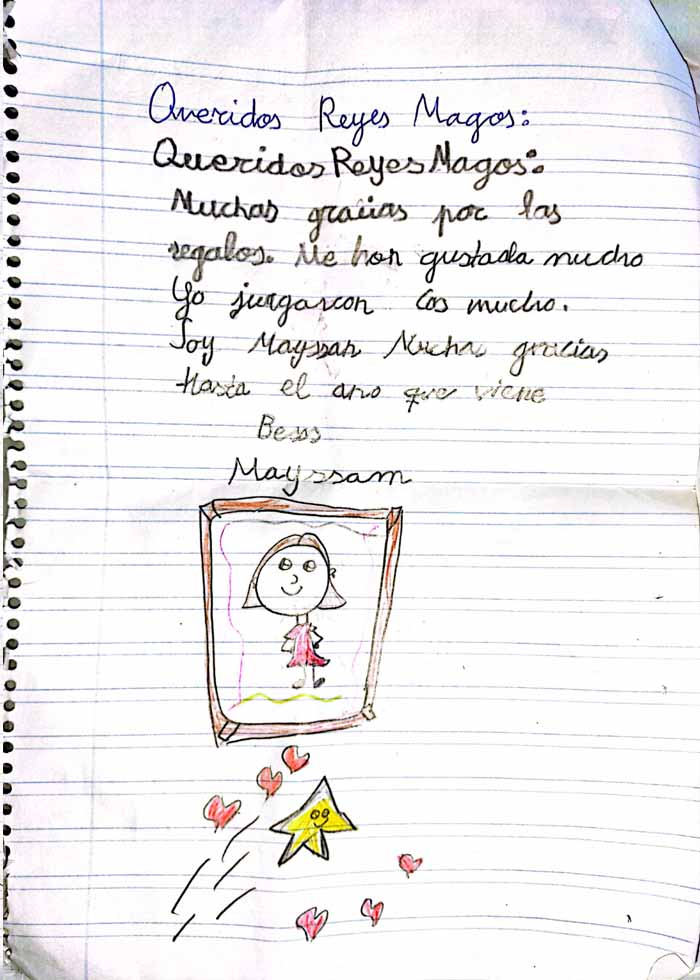 Queridos Reyes Magos:
Queridos Reyes Magos:
Muchas gracias por las
regalos. Me han gustada mucho
Yo juegarcon Cos mucho.
Soy Mayssan Mucha gracias
Hasta el ano que viene
Besos
Mayssam